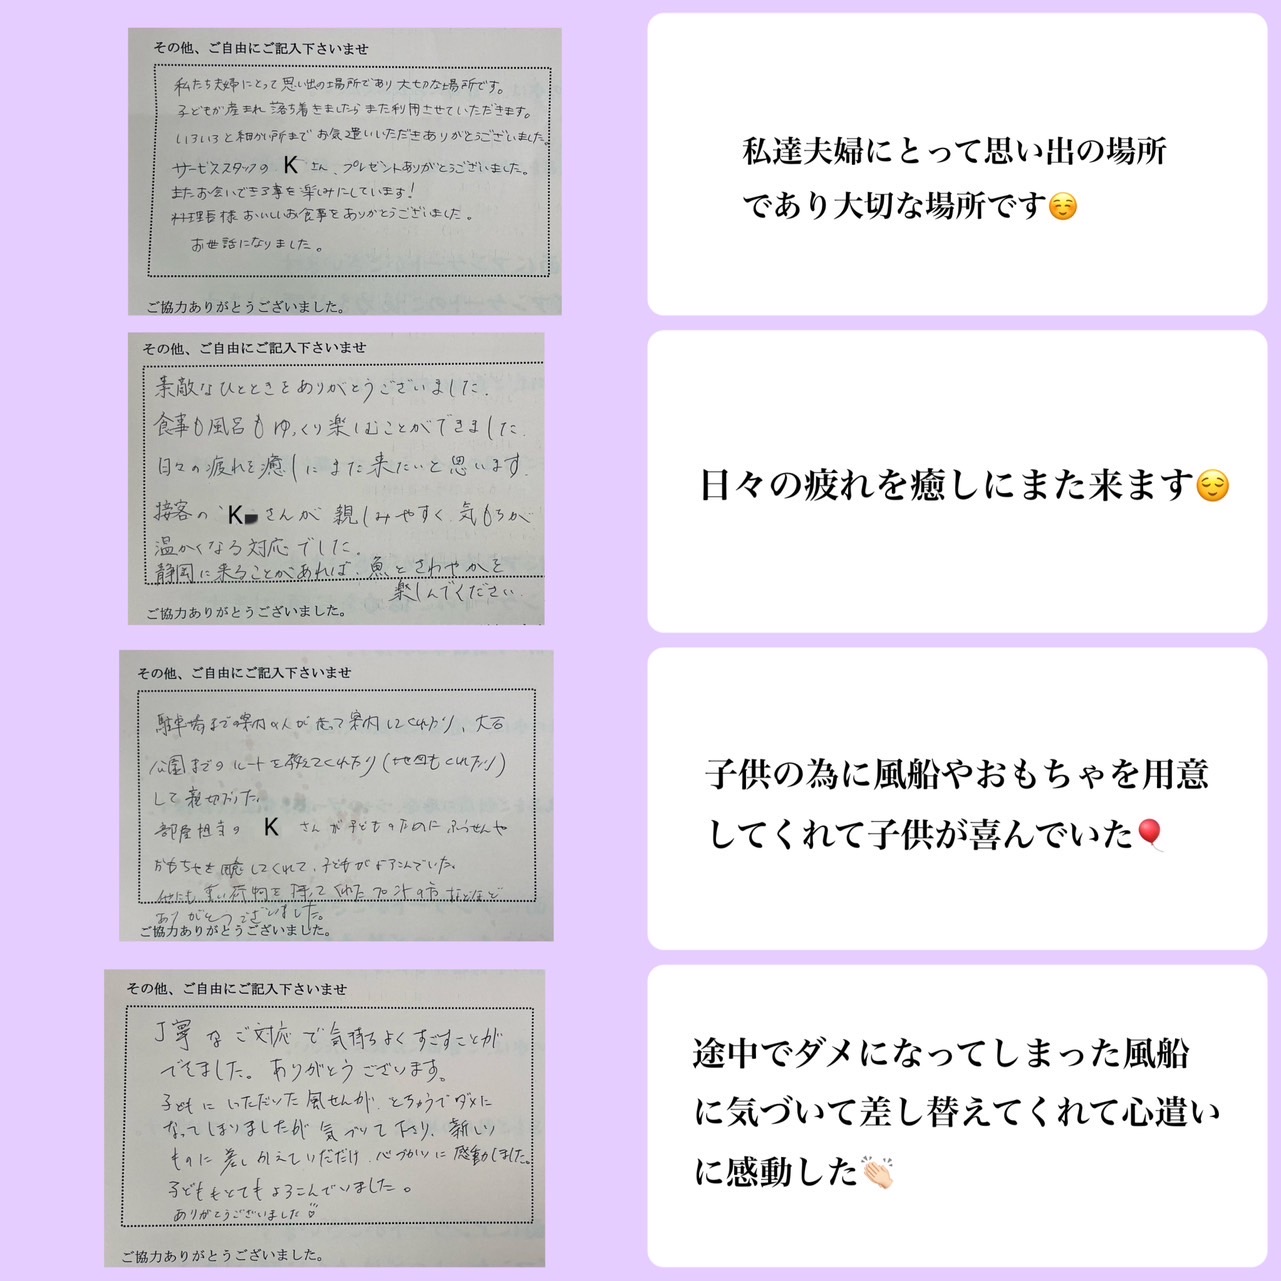 その他、ご自由にご記入下さいませ
私たち夫婦にとって思い出の場所であり大切な場所です。
子どもが産まれ落ち着きましたらまた利用させていただきます。
いろいろと細かい所までお気遣いいただきありがとうございました。
サービススタッフの K さん、プレゼントありがとうございました。
またお会いできる事を楽しみにしています!
料理長様おいしいお食事をありがとうございました。
お世話になりました。
ご協力ありがとうございました。
私達夫婦にとって思い出の場所
であり大切な場所です☺️
その他、ご自由にご記入下さいませ
素敵なひとときをありがとうございました.
食事も風呂もゆっくり楽しむことができました.
日々の疲れを癒しにまた来たいと思います.
接客の K さんが親しみやすく気もちが
温かくなる対応でした.
静岡に来ることがあれば、魚とさわやかを
楽しんでください.
ご協力ありがとうございました。
日々の疲れを癒しにまた来ます😌
その他、ご自由にご記入下さいませ
駐車場までの案内の人が走って案内してくれたり、大石
公園までのルートを教えてくれたり(地図もくれたり)
して親切だった。
部屋担当の K さんが子どものためにふうせんや
おもちゃを用意してくれて、子どもがよろこんでいた。
他にも重い荷物を持ってくれたフロントの方などなど
ありがとうございました。
ご協力ありがとうございました。
子供の為に風船やおもちゃを用意
してくれて子供が喜んでいた🎈
その他、ご自由にご記入下さいませ
丁寧なご対応で気持ちよくすごすことが
できました。ありがとうございます。
子どもにいただいた風せんが、とちゅうでダメに
なってしまいましたが気づいて下さり、新しい
ものに差しかえていただけ、心づかいに感動しました。
子どももとてもよろこんでいました。
ありがとうございました
ご協力ありがとうございました。
途中でダメになってしまった風船
に気づいて差し替えてくれて心遣い
に感動した👏🏻